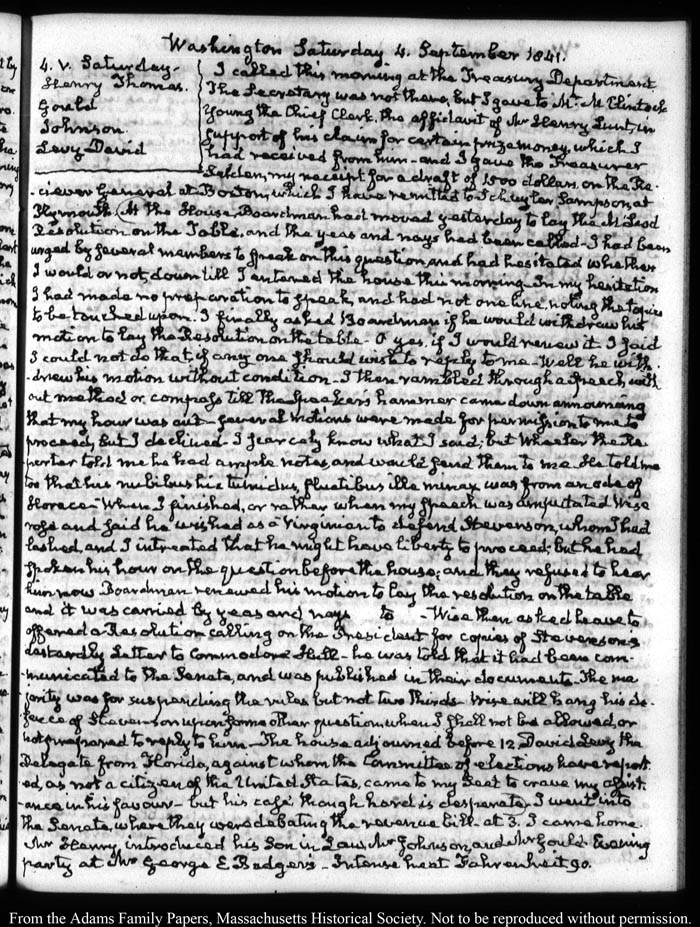 Washington Saturday 4. September 1841.
4. V. Saturday.
Henry Thomas.
Gould
Johnson.
Levy David
I called this morning at the Treasury Department
The Secretary was not there, but I gave to Mr. McClintock
Young the Chief Clerk, the affidavit of Mr Henry Lunt, in
support of his claim for certain prize money, which I
had received from him - and I gave the Treasurer
Selden, my receipt for a draft of 1500 dollars on the Re-
-ceiver General at Boston, which I have remitted to Schuyler Sampson, at
Plymouth. At the House, Boardman had moved yesterday to lay the McLeod
Resolution on the Table, and the yeas and nays had been called - I had been
urged by several members to speak on this question, and had hesitated whether
I would or not, down till I entered the house this morning. In my hesitation
I had made no preparation to speak, and had not one line, noting the topics
to be touched upon. I finally asked Boardman if he would withdraw his
motion to lay the Resolution on the table - O yes, if I would renew it. I said
I could not do that, if any one should wish to reply to me - Well he with-
-drew his motion without condition - I then rambled through a speech, with
out method or compass till the Speaker's hammer came down announcing
that my hour was out - Several motions were made for permission to me to
proceed, but I declined - I scarcely know what I said, but Wheeler the Re-
porter told me he had ample notes, and would send them to me. He told me
too that his nubibus hic tumidus, fluctibus ille minax was from an ode of
Horace - When I finished, or rather when my speech was amputated Wise
rose and said he wished as a Virginian to defend Stevenson, whom I had
lashed, and I intreated that he might have liberty to proceed; but he had
spoken his hour on the question before the house; and they refused to hear
him now Boardman renewed his motion to lay the resolution on the table
and it was carried by yeas and nays to - Wise then asked leave to
offered a Resolution calling on the President for copies of Stevenson's
dastardly Letter to Commodore Hull - he was told that it had been com-
-municated to the Senate, and was published in their documents. The ma
jority was for suspending the rules but not two thirds - Wise will hang his de-
fence of Stevenson upon some other question, when I shall not be allowed, or
not prepared to reply to him - The house adjourned before 12 David Levy the
Delegate from Florida, against whom the Committee of elections have report-
ed, as not a citizen of the United States, came to my Seat to crave my assist-
-ance in his favour - but his case though hard is desperate. I went into
the Senate, where they were debating the revenue bill. at 3. I came home.
Mr Henry introduced his Son in Law, Mr Johnson, and Mr Gould. Evening
party at Mr George E Badger's - Intense heat Fahrenheit 90.
From the Adams Family Papers, Massachusetts Historical Society. Not to be reproduced without permission.